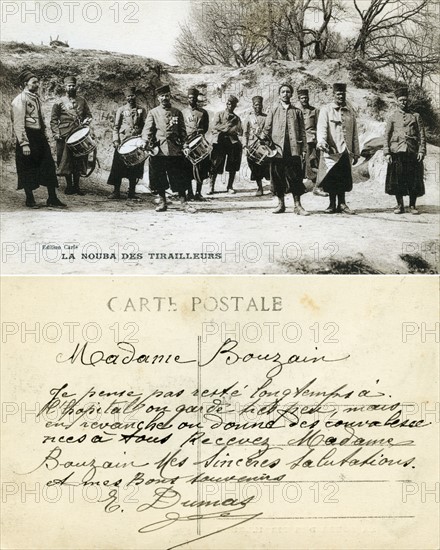 Edition Carle
LA NOUBA DES TIRAILLEURS
CARTE POSTALE
Madame Bouzain
Je pense pas resté longtemps à
l'hopital on garde très peu, mais
en revanche on donne des convalesce
nces à tous Recevez Madame
Bouzain Mes Sincères Salutations.
et mes Bons Souvenirs
E. Dumas